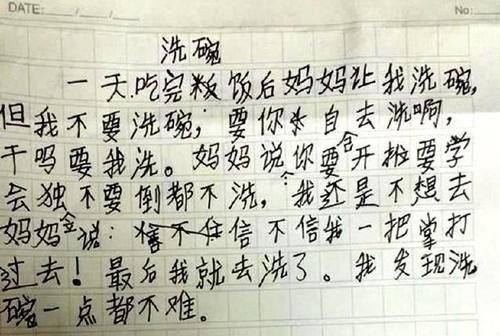 DATE: / / No:
洗碗
一天吃完板饭后妈妈让我洗碗,
但我不要洗碗,要你自去洗啊,
干吗要我洗。妈妈说你要会开始要学
会独不要倒都不洗,我还是不想去
妈妈会说:信不信我一把掌打
过去!最后我就去洗了。我发现洗
碗一点都不难。